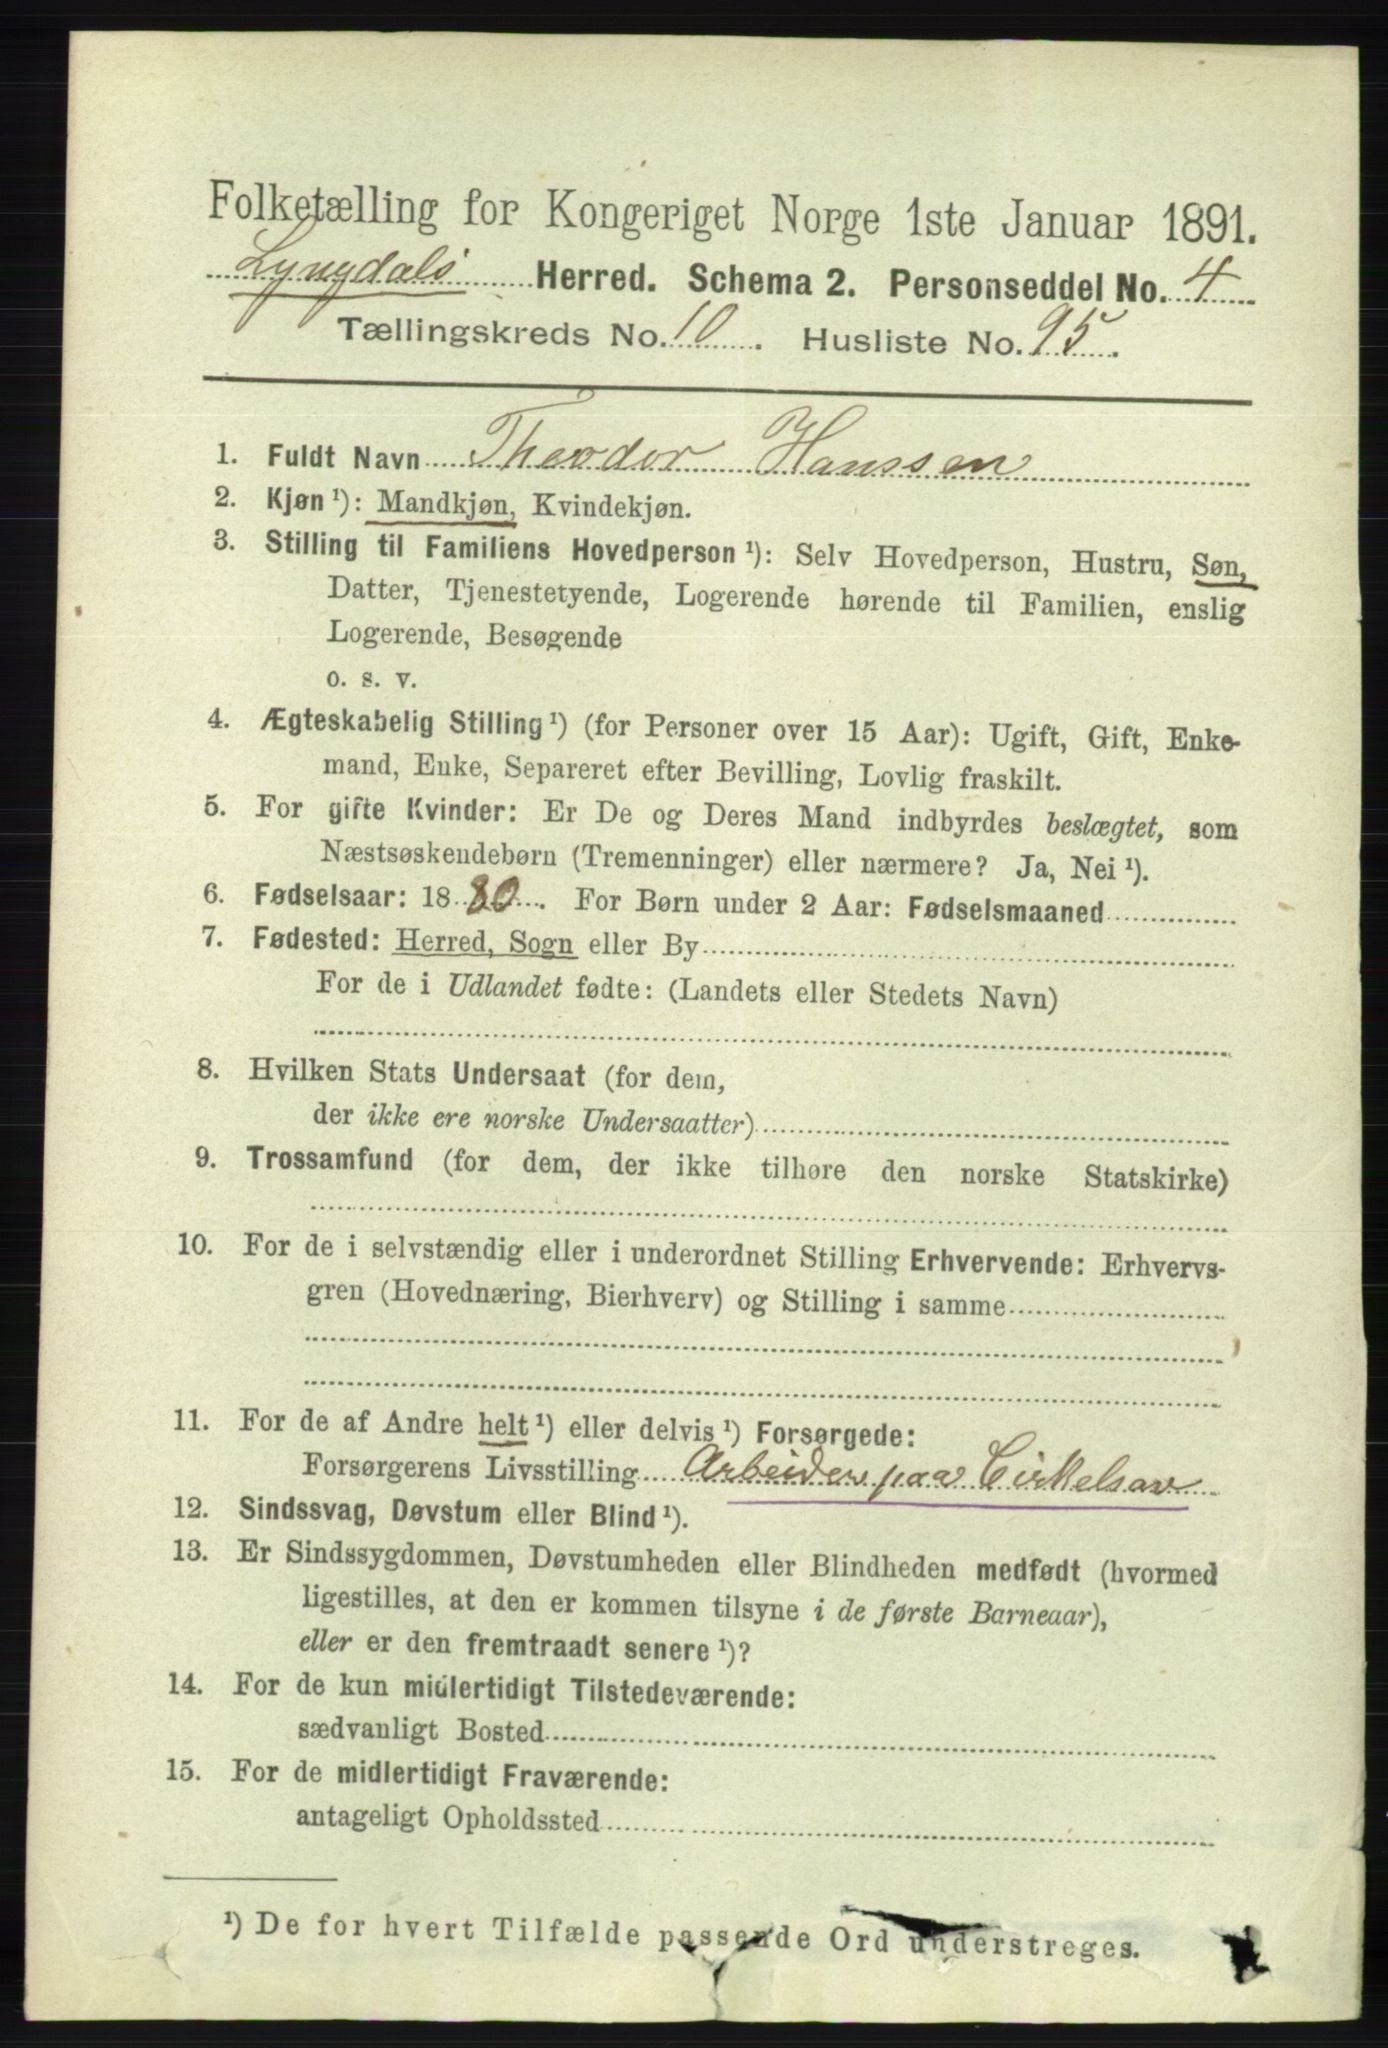 Folketælling for Kongeriget Norge 1ste Januar 1891.
Lyngdals Herred. Schema 2. Personseddel No. 4
Tællingskreds No. 10. Husliste No. 95.
1. Fuldt Navn Theodor Hanssen
2. Kjøn ¹): Mandkjøn, Kvindekjøn.
3. Stilling til Familiens Hovedperson ¹): Selv Hovedperson, Hustru, Søn,
Datter, Tjenestetyende, Logerende hørende til Familien, enslig
Logerende, Besøgende
o. s. v.
4. Ægteskabelig Stilling ¹) (for Personer over 15 Aar): Ugift, Gift, Enke-
mand, Enke, Separeret efter Bevilling, Lovlig fraskilt.
5. For gifte Kvinder: Er De og Deres Mand indbyrdes beslægtet, som
Næstsøskendebørn (Tremenninger) eller nærmere? Ja, Nei ¹).
6. Fødselsaar: 1880. For Børn under 2 Aar: Fødselsmaaned
7. Fødested: Herred, Sogn eller By
For de i Udlandet fødte: (Landets eller Stedets Navn)
8. Hvilken Stats Undersaat (for dem,
der ikke ere norske Undersaatter)
9. Trossamfund (for dem, der ikke tilhøre den norske Statskirke)
10. For de i selvstændig eller i underordnet Stilling Erhvervende: Erhvervs-
gren (Hovednæring, Bierhverv) og Stilling i samme
11. For de af Andre helt ¹) eller delvis ¹) Forsørgede:
Forsørgerens Livsstilling Arbeider paa Cirkelsav
12. Sindssvag, Døvstum eller Blind ¹).
13. Er Sindssygdommen, Døvstumheden eller Blindheden medfødt (hvormed
ligestilles, at den er kommen tilsyne i de første Barneaar),
eller er den fremtraadt senere ¹)?
14. For de kun midlertidigt Tilstedeværende:
sædvanligt Bosted
15. For de midlertidigt Fraværende:
antageligt Opholdssted
¹) De for hvert Tilfælde passende Ord understreges.